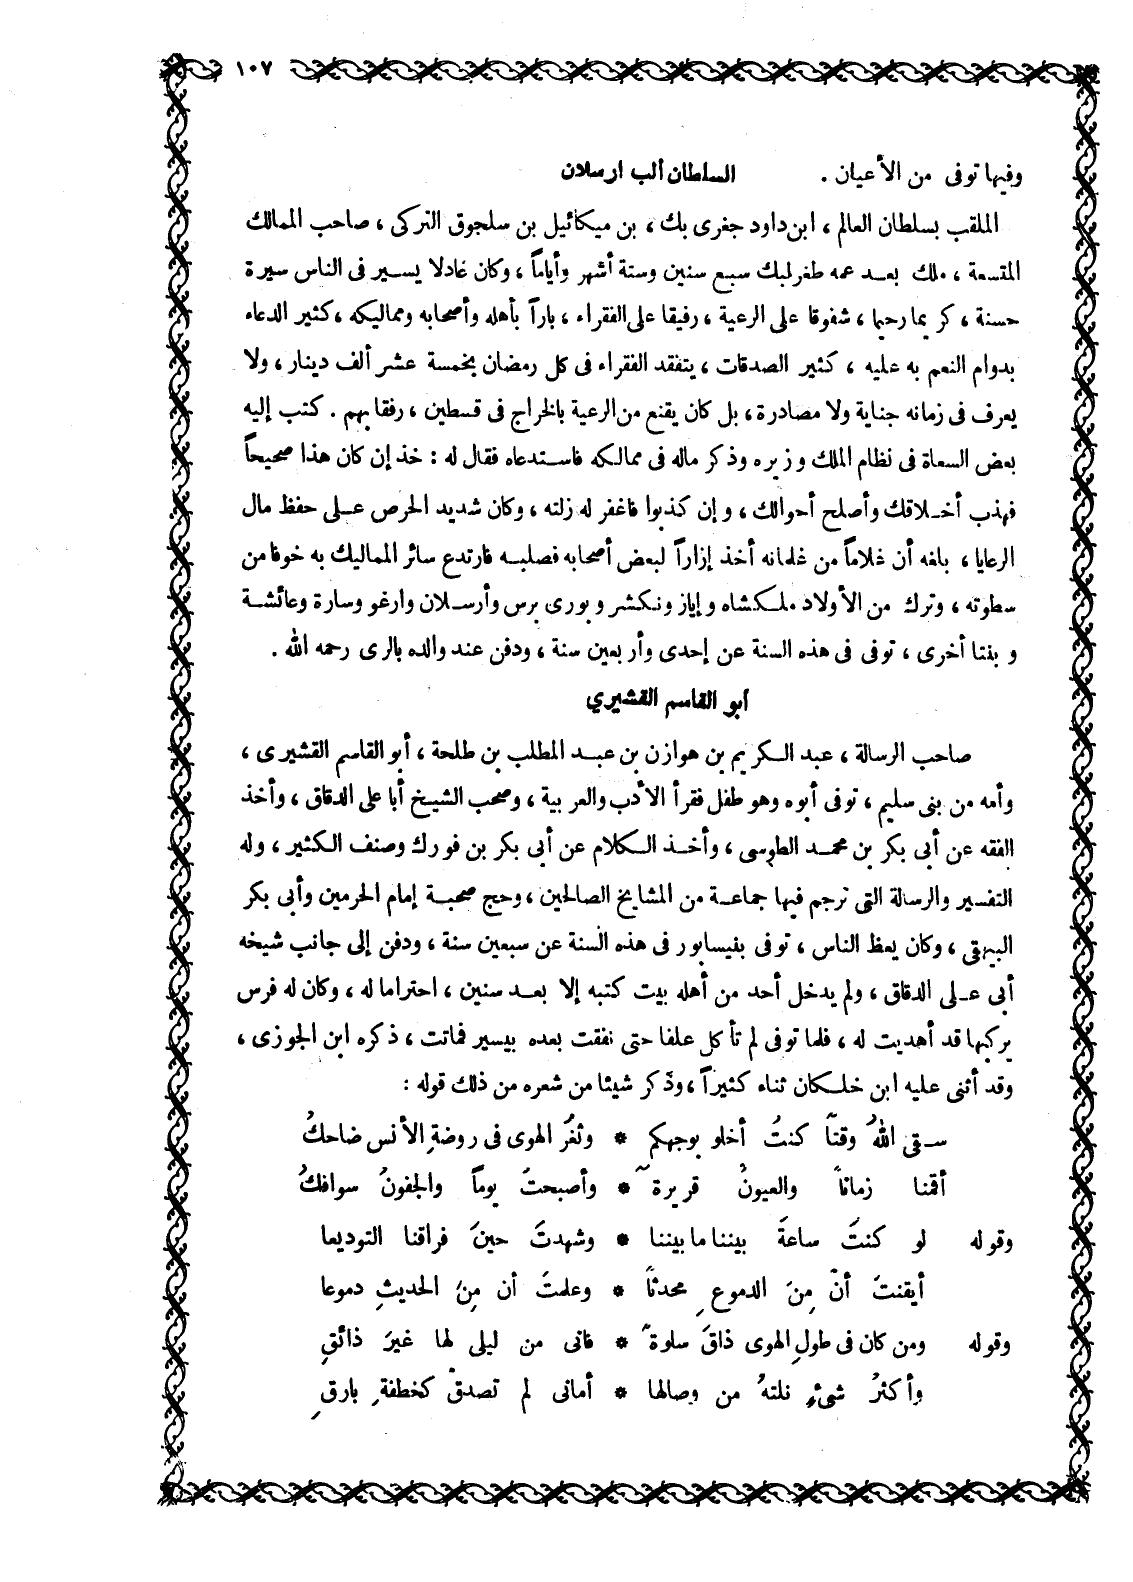 ١٠٧
وفيها توفى من الأعيان . السلطان ألب ارسلان
الملقب بسلطان العالم ، ابن داود جغرى بك ، بن ميكائيل بن سلجوق التركى ، صاحب الممالك
المتسعة ، ملك بعد عمه طغرلبك سبع سنين وستة أشهر وأياماً ، وكان عادلا يسير فى الناس سيرة
حسنة ، كريما رحيما ، شفوقا على الرعية ، رفيقا على الفقراء ، باراً بأهله وأصحابه ومماليكه ، كثير الدعاء
بدوام النعم به عليه ، كثير الصدقات ، يتفقد الفقراء فى كل رمضان بخمسة عشر ألف دينار ، ولا
يعرف فى زمانه جناية ولا مصادرة ، بل كان يقنع من الرعية بالخراج فى قسطين ، رفقا بهم . كتب إليه
بعض السعاة فى نظام الملك وزيره وذكر ماله فى ممالكه فاستدعاه فقال له : خذ إن كان هذا صحيحاً
فهذب أخلاقك وأصلح أحوالك ، و إن كذبوا فاغفر له زلته ، وكان شديد الحرص على حفظ مال
الرعايا ، بلغه أن غلاماً من غلمانه أخذ إزاراً لبعض أصحابه فصلبه فارتدع سائر المماليك به خوفا من
سطوته ، وترك من الأولاد ملكشاه و إياز ونكشر و بورى برس وأرسلان وارغو وسارة وعائشة
و بنتا أخرى ، توفى فى هذه السنة عن إحدى وأربعين سنة ، ودفن عند والده بالرى رحمه الله .
أبو القاسم القشيري
صاحب الرسالة ، عبد الكريم بن هوازن بن عبد المطلب بن طلحة ، أبو القاسم القشيرى ،
وأمه من بنى سليم ، توفى أبوه وهو طفل فقرأ الأدب والعربية ، وصحب الشيخ أبا على الدقاق ، وأخذ
الفقه عن أبى بكر بن محمد الطوسى ، وأخذ الكلام عن أبى بكر بن فورك وصنف الكثير ، وله
التفسير والرسالة التى ترجم فيها جماعة من المشايخ الصالحين ، وحج صحبة إمام الحرمين وأبى بكر
البيهقى ، وكان يعظ الناس ، توفى بنيسابور فى هذه السنة عن سبعين سنة ، ودفن إلى جانب شيخه
أبى على الدقاق ، ولم يدخل أحد من أهله بيت كتبه إلا بعد سنين ، احتراما له ، وكان له فرس
يركبها قد أهديت له ، فلما توفى لم تأكل علفا حتى نفقت بعده بيسير فماتت ، ذكره ابن الجوزى ،
وقد أثنى عليه ابن خلكان ثناء كثيراً ، وذكر شيئا من شعره من ذلك قوله :
سقى اللهُ وقتاً كنتُ أخلو بوجهكم * وثغرُ الهوى فى روضةِ الأنس ضاحكُ
أقمنا زماناً والعيونُ قريرةً * وأصبحتُ يوماً والجفونُ سوافكُ
وقوله لو كنتَ ساعةَ بيننا ما بيننا * وشهدتَ حينَ فراقنا التوديعا
أيقنتَ أنّ مِنَ الدموعِ محدثاً * وعلمتَ أن مِنَ الحديثِ دموعا
وقوله ومن كان فى طولِ الهوى ذاقَ سلوةً * فانى من ليلى لها غيرَ ذائقِ
وأكثرُ شىءٍ نلتهُ من وصالها * أمانى لم تصدقْ كخطفةِ بارقِ